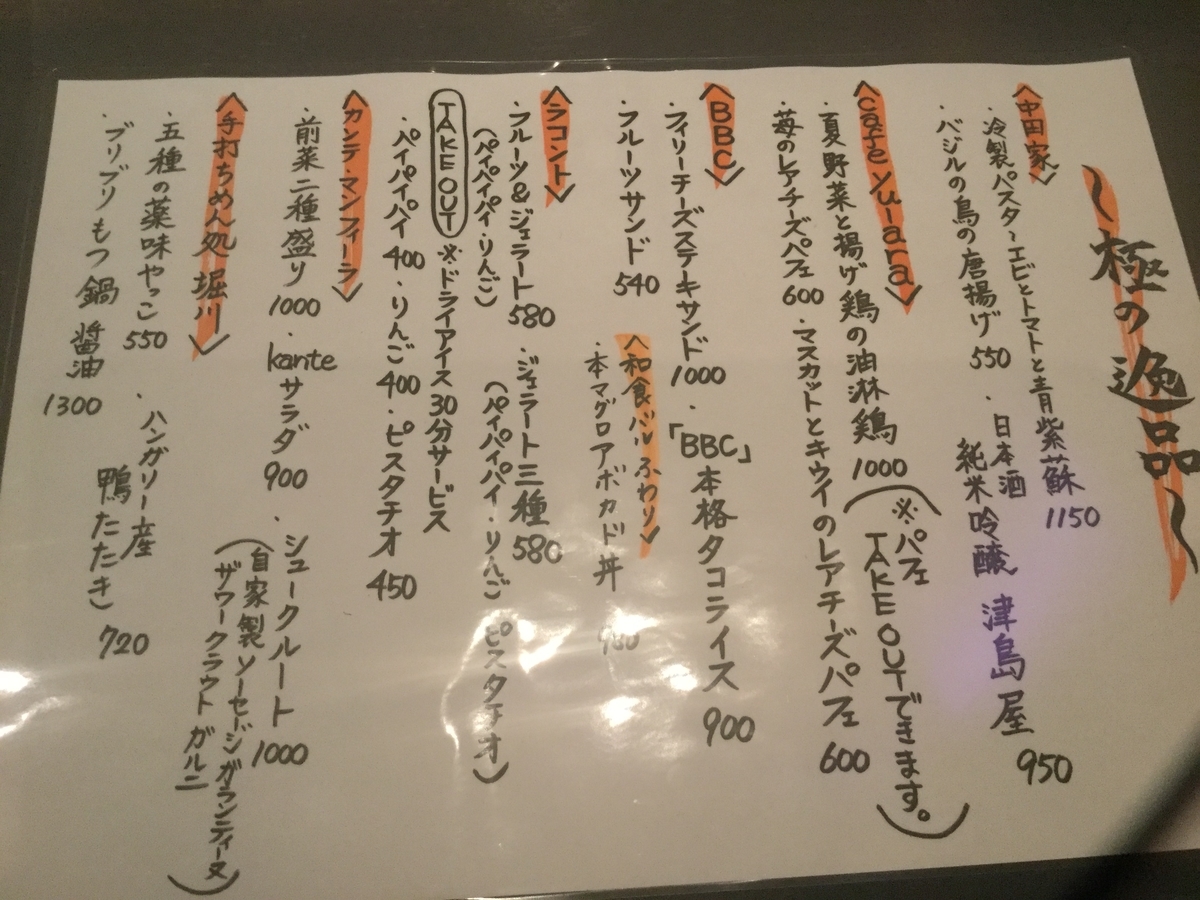 〜極の逸品〜
〈中田家〉
・冷製パスターエビとトマトと青紫蘇 1150
・バジルの鳥の唐揚げ 550
・日本酒 純米吟醸 津島屋 950
〈cafe yu-ara〉
・夏野菜と揚げ鶏の油淋鶏 1000
・苺のレアチーズパフェ 600
・マスカットとキウイのレアチーズパフェ 600
(※パフェ TAKE OUTできます。)
〈BBC〉
・フィリーチーズステキサンド 1000
・「BBC」本格タコライス 900
・フルーツサンド 540
〈和食バル ふわり〉
・本マグロアボカド丼 980
〈ラコント〉
・フルーツ&ジェラート 580
(パイパイパイ・りんご)
・ジェラート三種 580
(パイパイパイ・りんご ピスタチオ)
TAKE OUT ※ドライアイス30分サービス
・パイパイパイ 400 ・りんご 400 ・ピスタチオ 450
〈カンテ・マンフィーラ〉
・前菜二種盛り 1000
・kanteサラダ 900
・シュークルート 1000
(自家製ソーセージ ガランティーヌ
ザワークラウト ガルニ)
〈手打ちめん処 堀川〉
・五種の薬味やっこ 550
・ハンガリー産 鴨たたき 720
・プリプリもつ鍋 醤油 1300